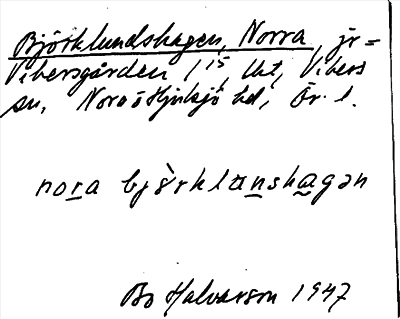 Björklundshagen, Norra, jr=
Vibersgården 1/15, Ut, Vibers
sn, Nora o Hjulsjö hd, Ör. l.
nora bjòrklɯnshagən
Bo Halvarson 1947